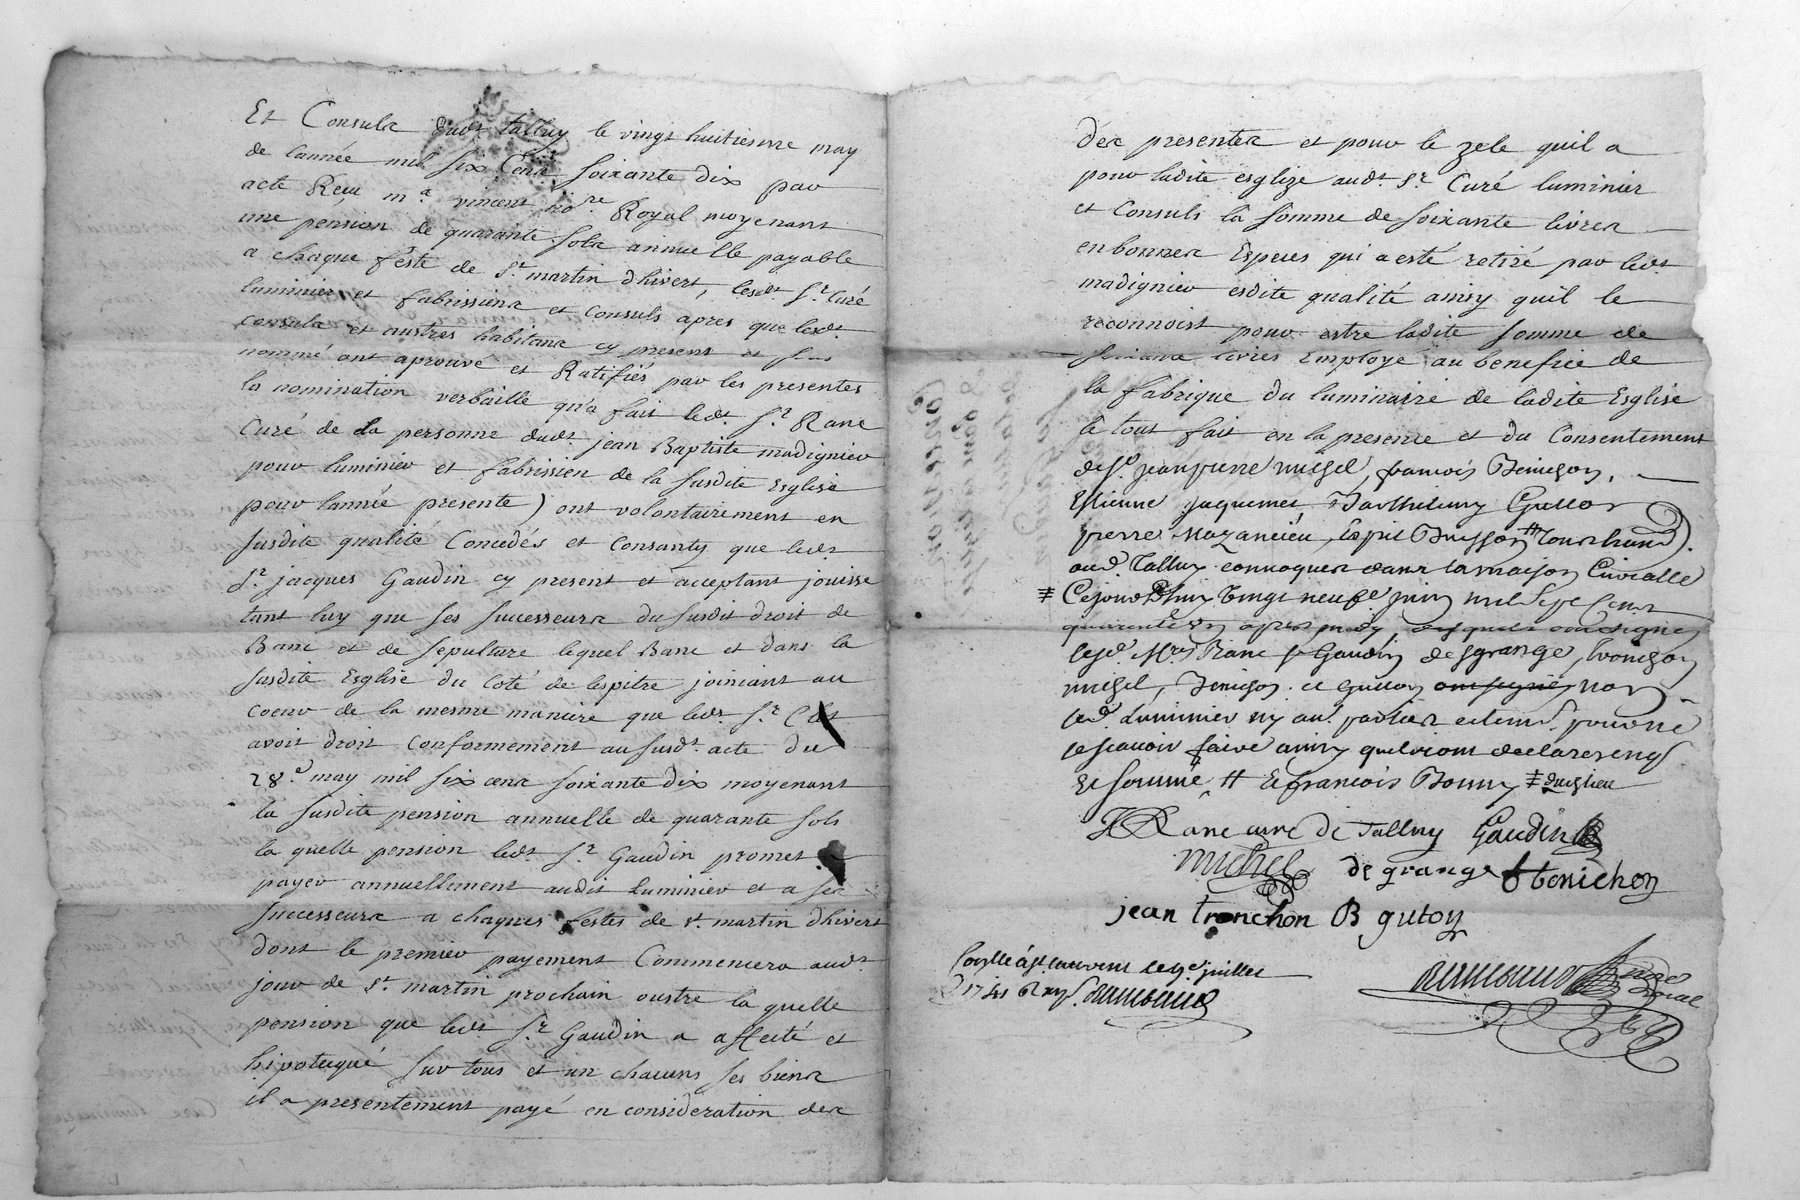 Et Consuls dudt talluy le vingt huitiesme may
de lannée mil six Cent soixante dix par
acte Reçu me vincent nore Royal moyenant
une pension de quarante sols annuelle payable
a chaque féste de st martin dhivert, lesdt sr Curé
luminier et fabrissiens et Consuls apres que lesdt
consuls et austres habitans cy present et
nommé ont aprouvé et Ratifiés par les presentes
la nomination verbaille qu'a fait ledt sr Rane
Curé de la personne dudt jean Baptiste madignier
pour luminier et fabrissien de la susdite Esglise
pour lannée presente) ont volontairement en
susdite qualité Concedés et Consanty que ledt
sr jacques Gaudin cy present et acceptant jouisse
tant luy que ses successeurs du susdit droit de
Banc et de sepulture lequel Banc et dans la
susdite Esglise du Coté de lespitre joiniant au
coeur de la mesme maniere que ledt sr
avoit droit conformement au susdt acte du
28e may mil six cent soixante dix moyenant
la susdite pension annuelle de quarante sols
la quelle pension ledt sr Gaudin promet
payer annuellement audit luminier et a ses
successeurs a chaques festes de st martin dhivert
dont le premier payement Commencera audt
jour de st martin prochain oustre la quelle
pension que ledt sr Gaudin a affecté et
hipotequé sur tous et un chacuns ses biens
il a presentement payé en consideration des
des presentes et pour le zele quil a
pour ladite esglize audt sr Curé luminier
et Consuls la somme de soixante livres
en bonnes Especes qui a esté retiré par ledt
madignier esdite qualité ainsy quil le
reconnoist pour estre ladite somme de
livres Employé au benefice de
la fabrique du luminaire de ladite Esglise
le tout fait en la presence et du Consentement
de sr jean pierre michel, francois Benichon,
Estienne jaquemet Barthelemy Gutton
pierre Mazancieu, Espri Buisson # Tourchand).
aud Talluy convoqués dans la maison Curialle
≢ Cejourdhuy vingt neufe juin mil sept cent
quarente un apres midy, soubsigné
lesd. Mres Rane sr Gaudin desgrange, tronchon
michel, Benichon et Gutton non
led Luminier ny aud.
le scavoir faire ainsy quilz ont declaré enqs
et sommé # Et francois Bonny ≢
J Rane curé de Talluy Gaudin
michel de grange Benichon
jean tronchon B guton
Conllé à st laurent le juillet
1741